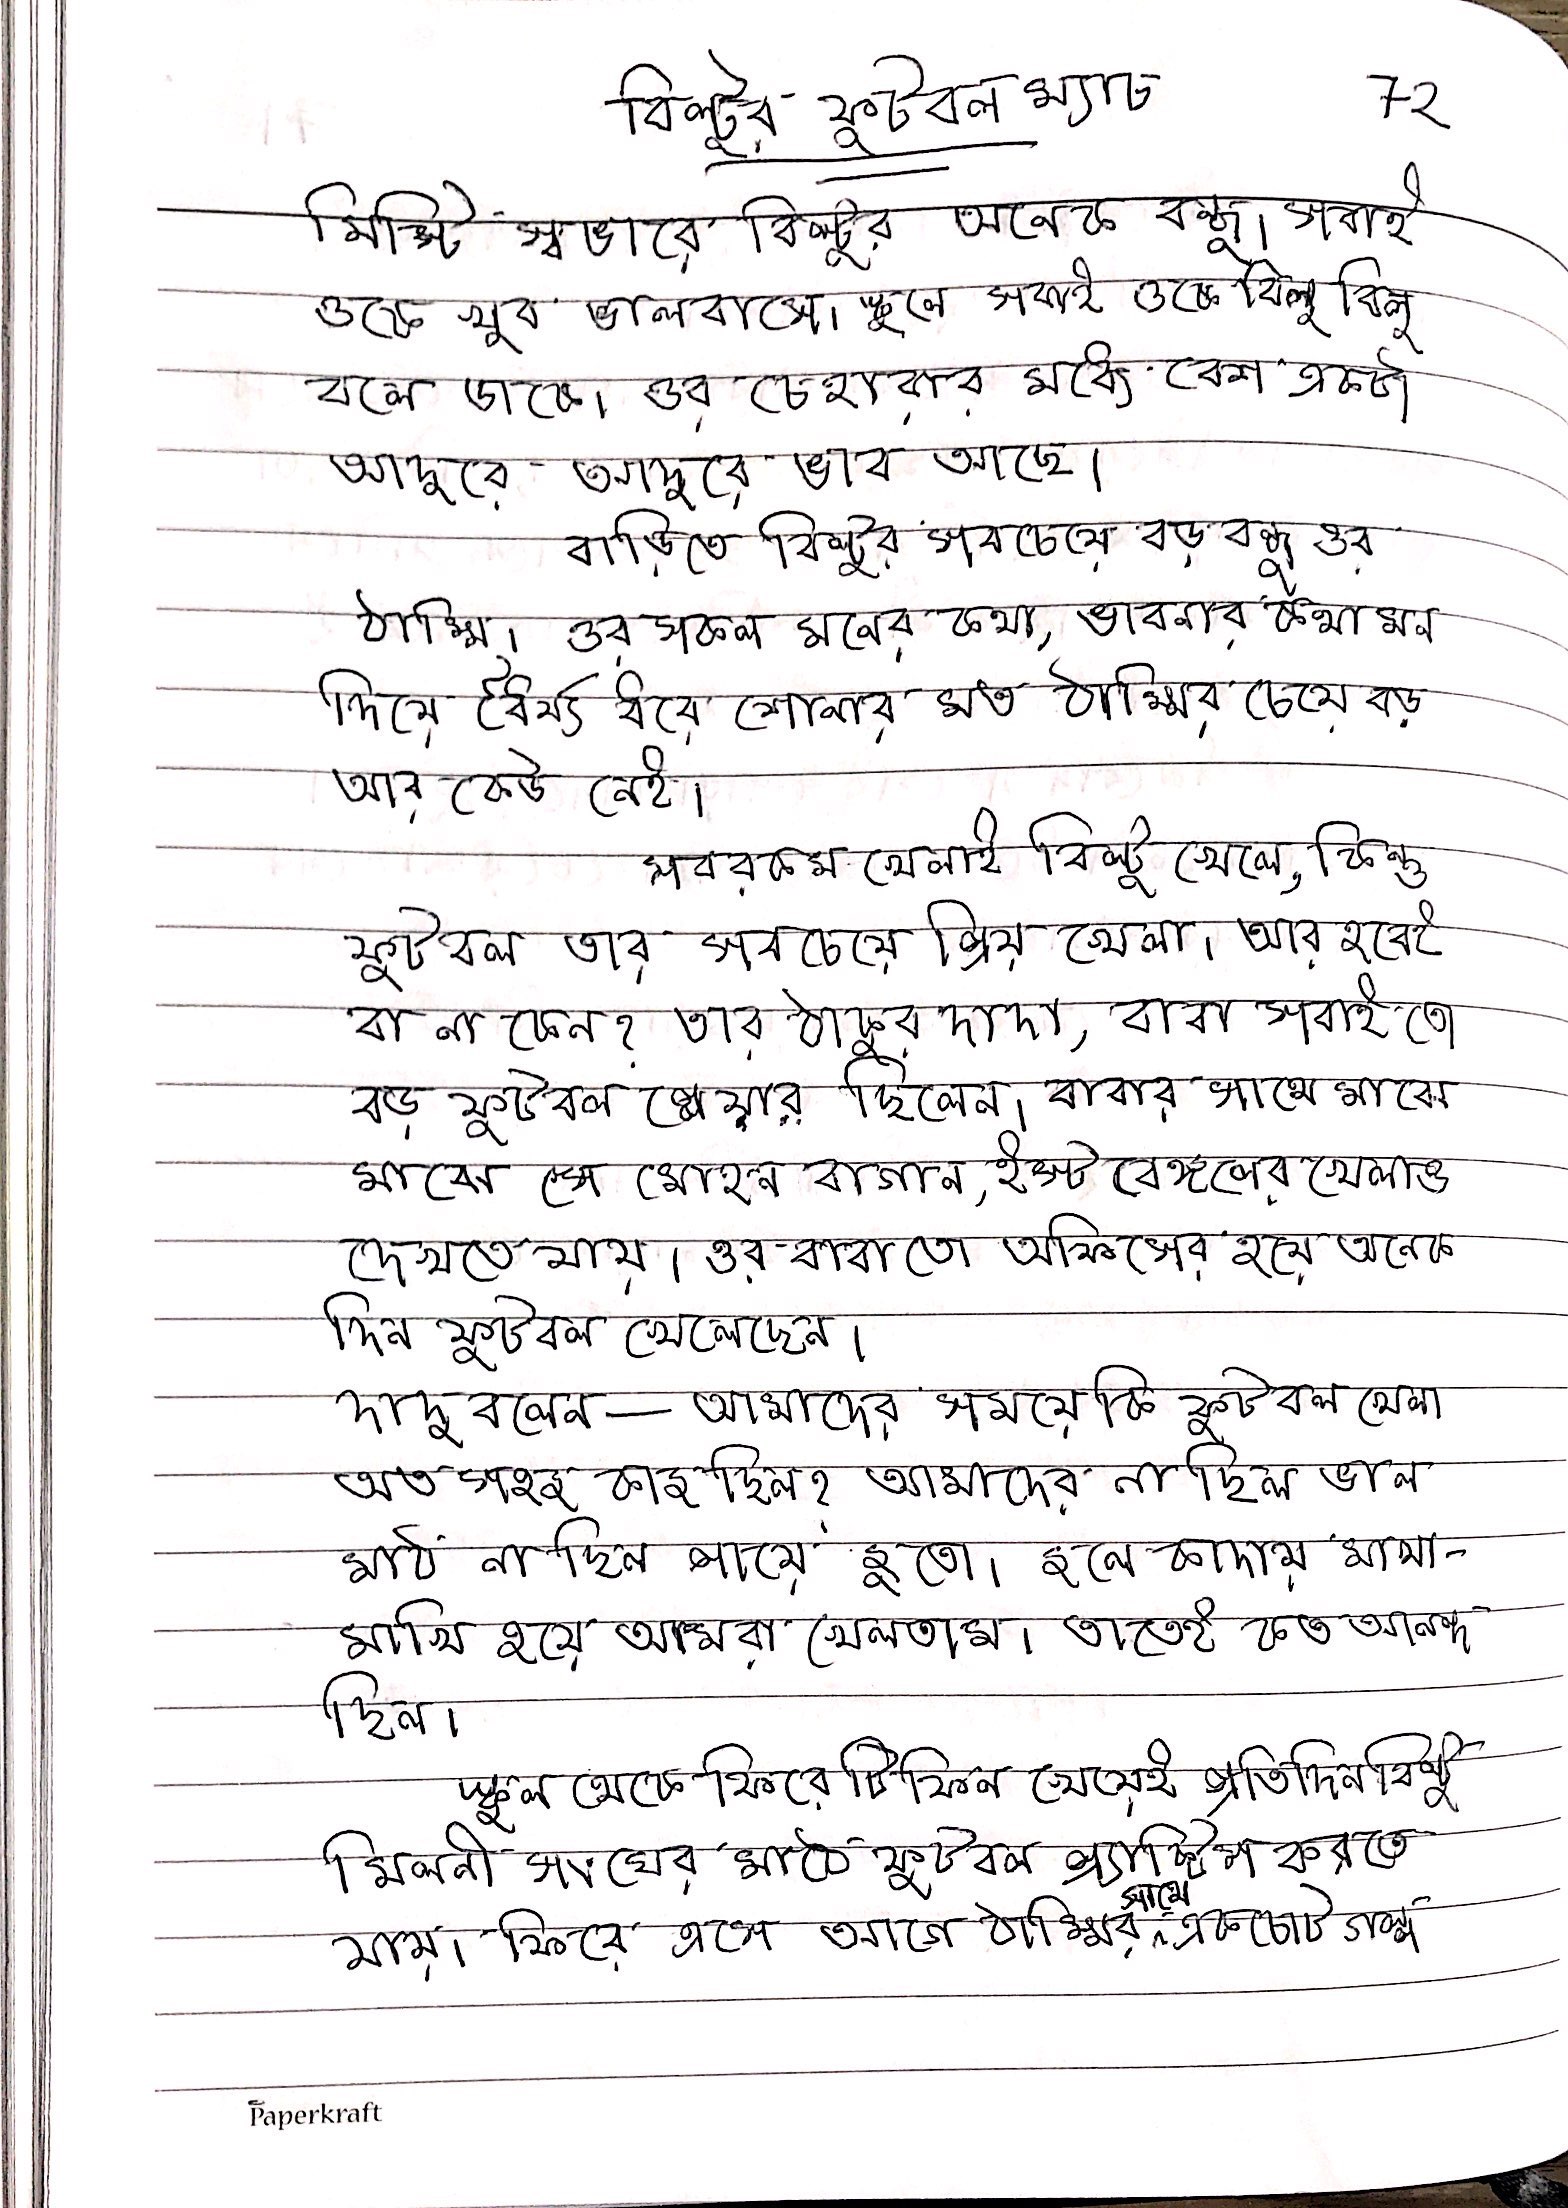 বিল্টুর ফুটবল ম্যাচ 72
মিষ্টি স্বভাবে বিল্টুর অনেক বন্ধু। সবাই
ওকে খুব ভালবাসে। স্কুলে সবাই ওকে বিলু বিলু
বলে ডাকে। ওর চেহারার মধ্যে বেশ একটা
আদুরে আদুরে ভাব আছে।
বাড়িতে বিল্টুর সবচেয়ে বড় বন্ধু ওর
ঠাম্মি। ওর সকল মনের কথা, ভাবনার কথা মন
দিয়ে ধৈর্য্য ধরে শোনার মত ঠাম্মির চেয়ে বড়
আর কেউ নেই।
সবরকম খেলাই বিল্টু খেলে, কিন্তু
ফুটবল তার সবচেয়ে প্রিয় খেলা। আর হবেই
বা না কেন? তার ঠাকুরদাদা, বাবা সবাই তো
বড় ফুটবল প্লেয়ার ছিলেন। বাবার সাথে মাঝে
মাঝে সে মোহন বাগান, ইস্ট বেঙ্গলের খেলাও
দেখতে যায়। ওর বাবা তো অফিসের হয়ে অনেক
দিন ফুটবল খেলেছেন।
দাদু বলেন — আমাদের সময়ে কি ফুটবল খেলা
অত সহজ কাজ ছিল? আমাদের না ছিল ভাল
মাঠ না ছিল পায়ে জুতো। জলে কাদায় মাখা-
মাখি হয়ে আমরা খেলতাম। তাতেই কত আনন্দ
ছিল।
স্কুল থেকে ফিরে টিফিন খেয়েই প্রতিদিন বিল্টু
মিলনী সংঘের মাঠে ফুটবল প্র্যাক্টিস করতে
যায়। ফিরে এসে আগে ঠাম্মির সাথে একচোট গল্প
Paperkraft